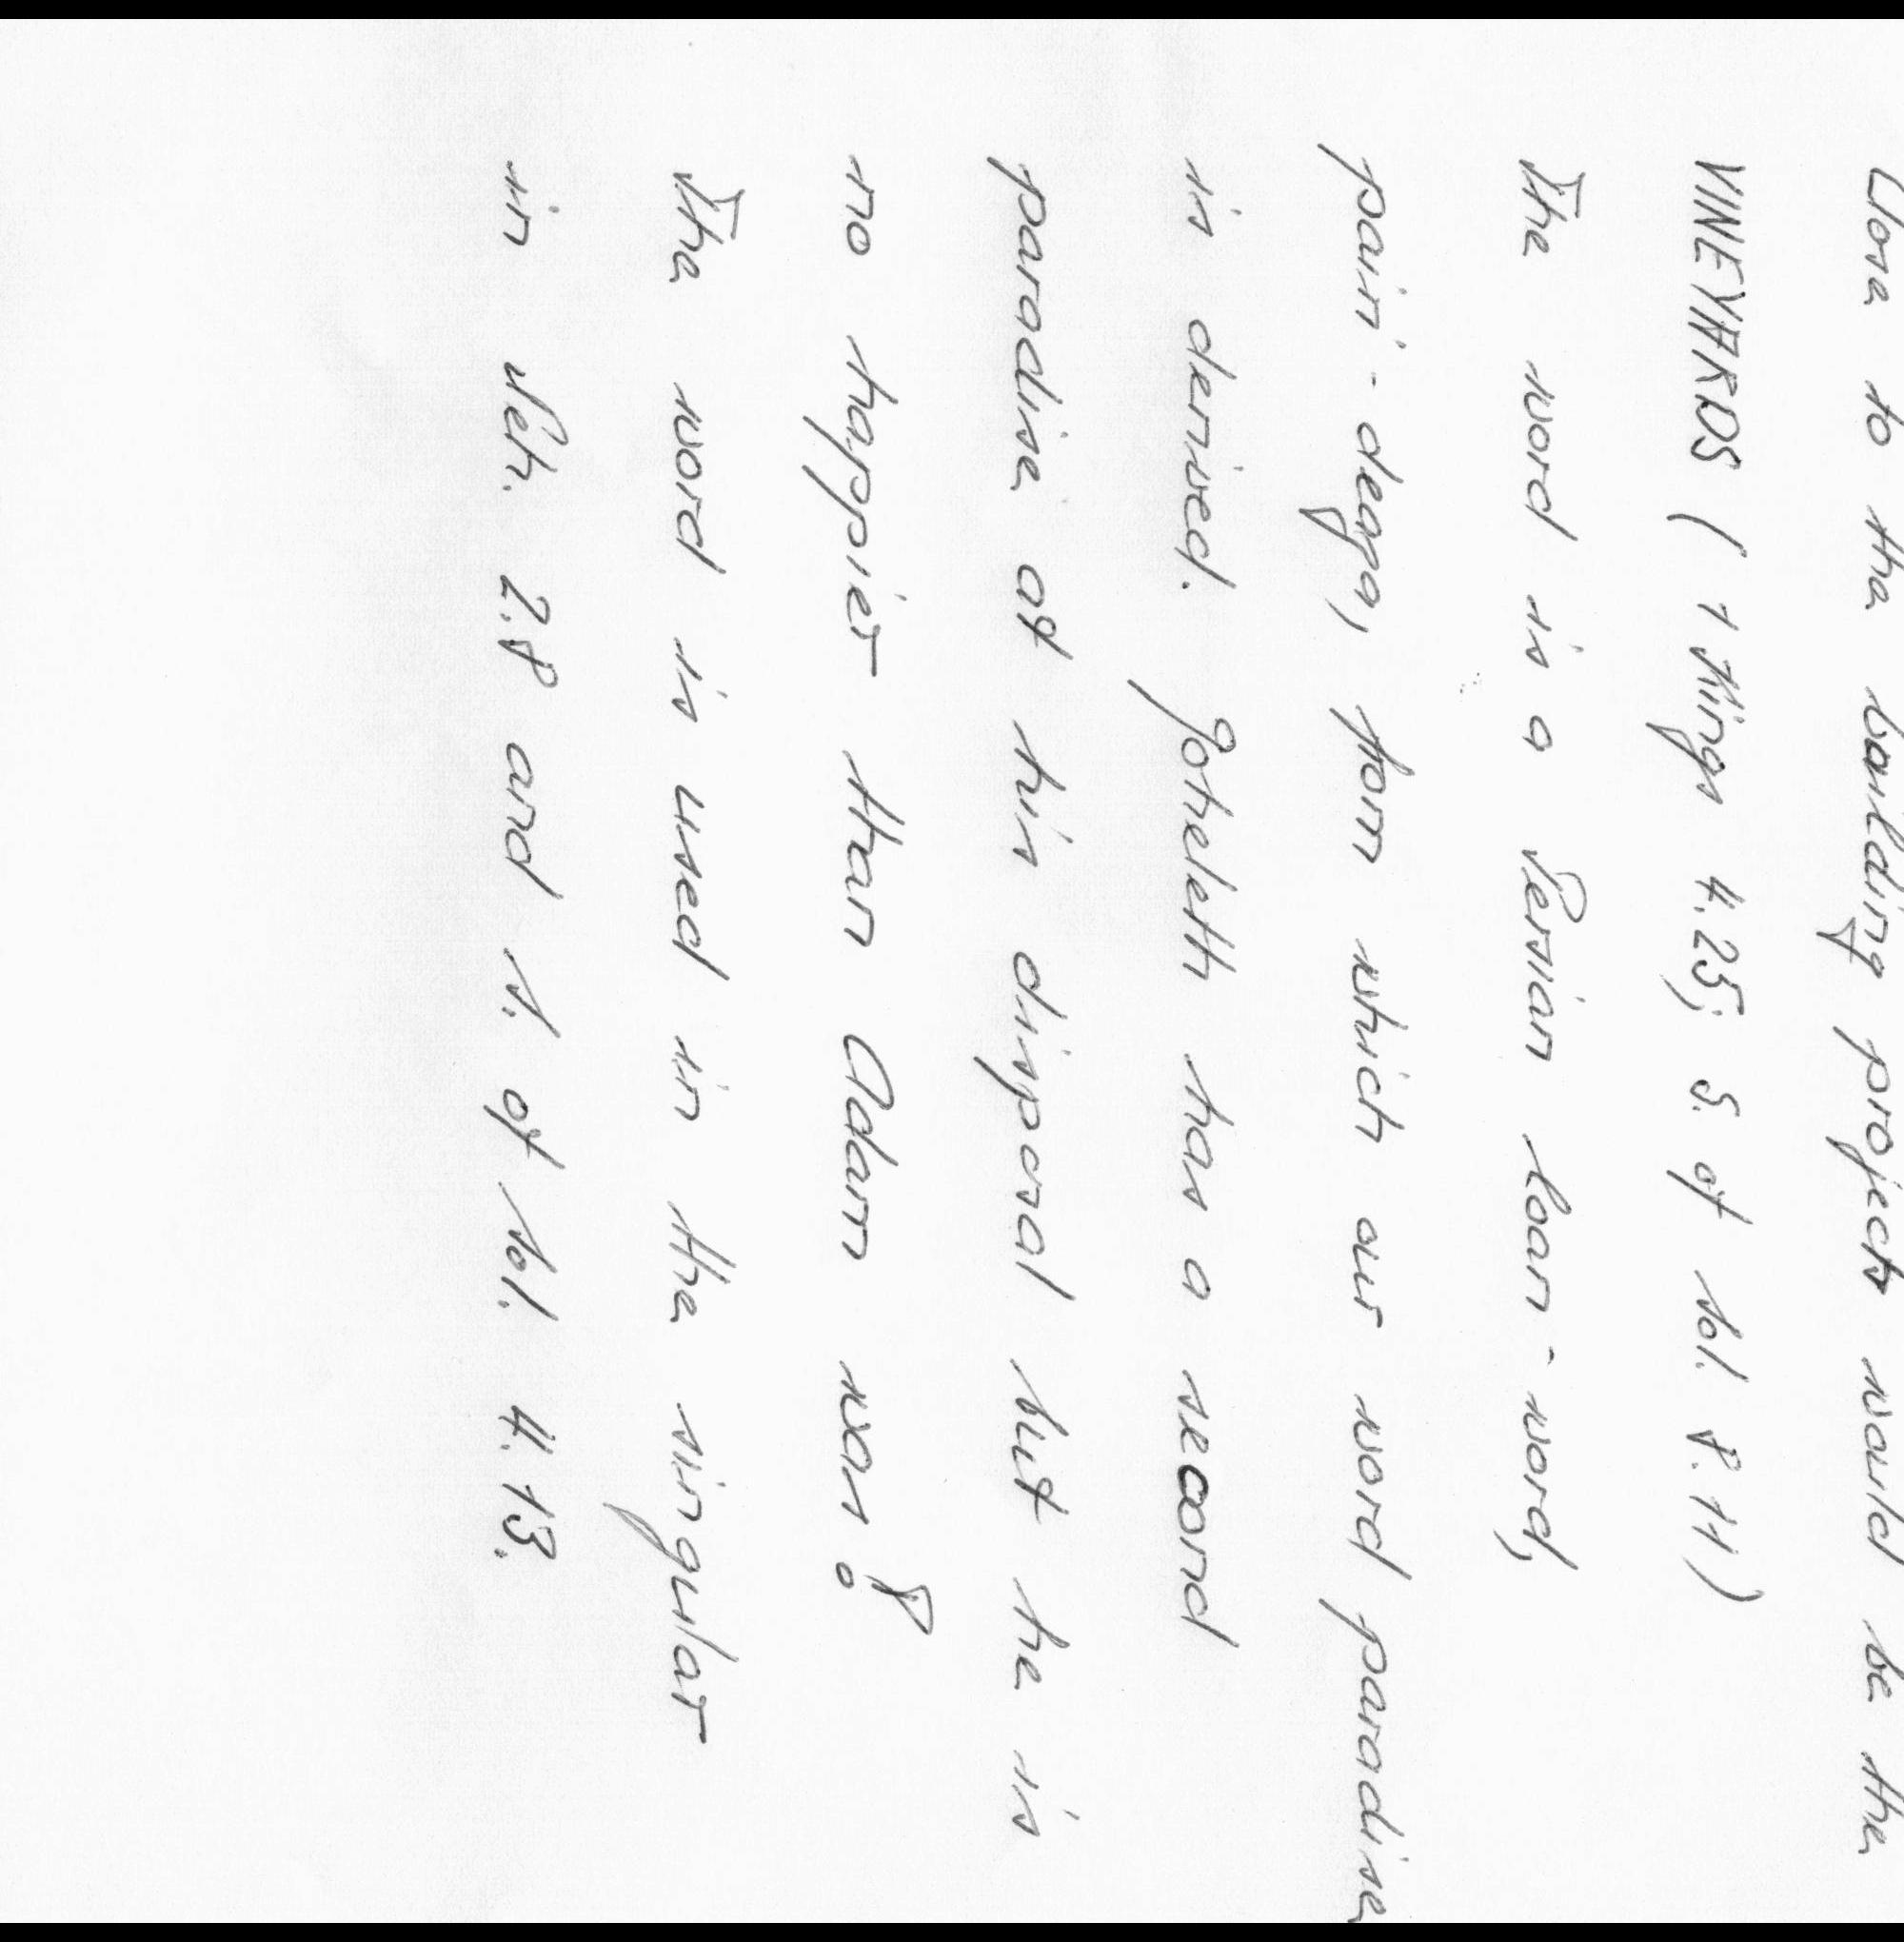 Close to the building project would be the
VINEYARDS (1 Kings 4.25; S. of Sol. 8.11)
The word is a Persian loan-word,
pairi-degga, from which our word paradise
is derived. Qoheleth has a second
paradise at his disposal but he is
no happier than Adam was!
The word is used in the singular
in Neh. 2.8 and S. of Sol. 4.13.